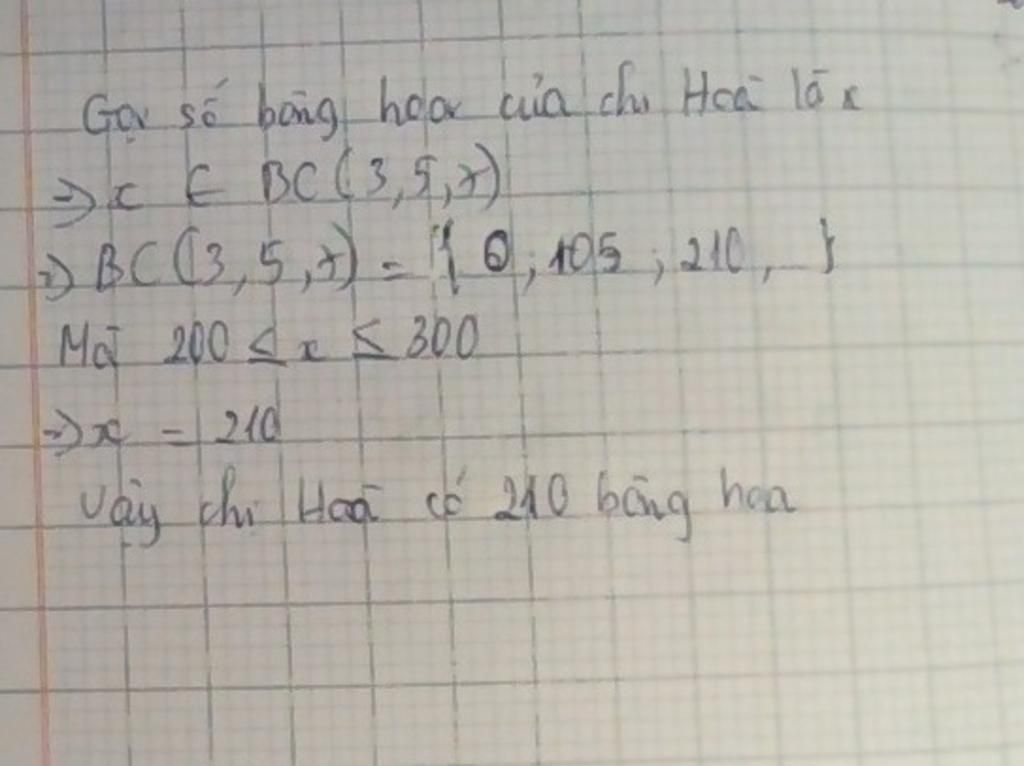 Gọi số bông hoa của chị Hoà là x
=> x ∈ BC(3,5,7)
=> BC(3,5,7) = { 0; 105; 210, }
Mà 200 ≤ x ≤ 300
=> x = 210
Vậy chị Hoà có 210 bông hoa